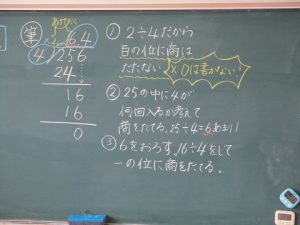 筆
64
4)256
24
16
16
0
① 2÷4だから
百の位に商は
たたない ×0は書かない！
② 25の中に4が
何回入るか考えて
商をたてる。25÷4=6あまり1
③ 6をおろす。16÷4をして
一の位に商をたてる。